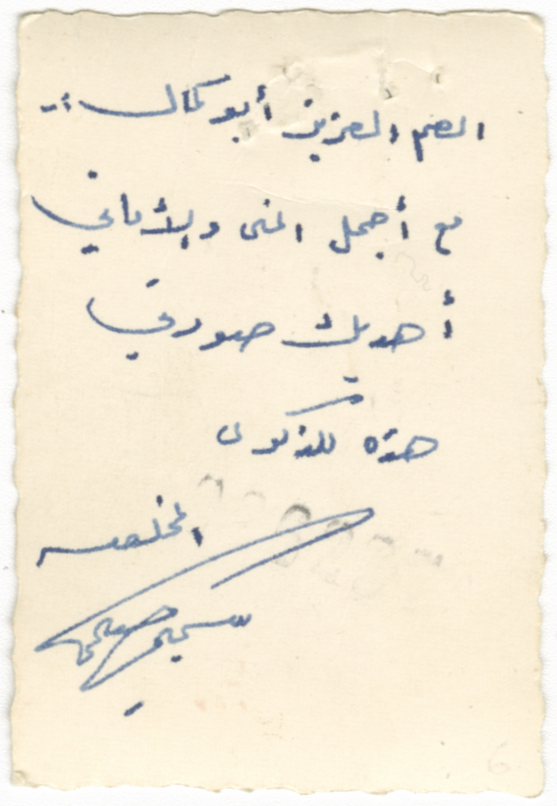 العم العزيز أبو كمال :-
مع أجمل المنى والأماني
أهديك صورتي
هذه للذكرى
المخلص